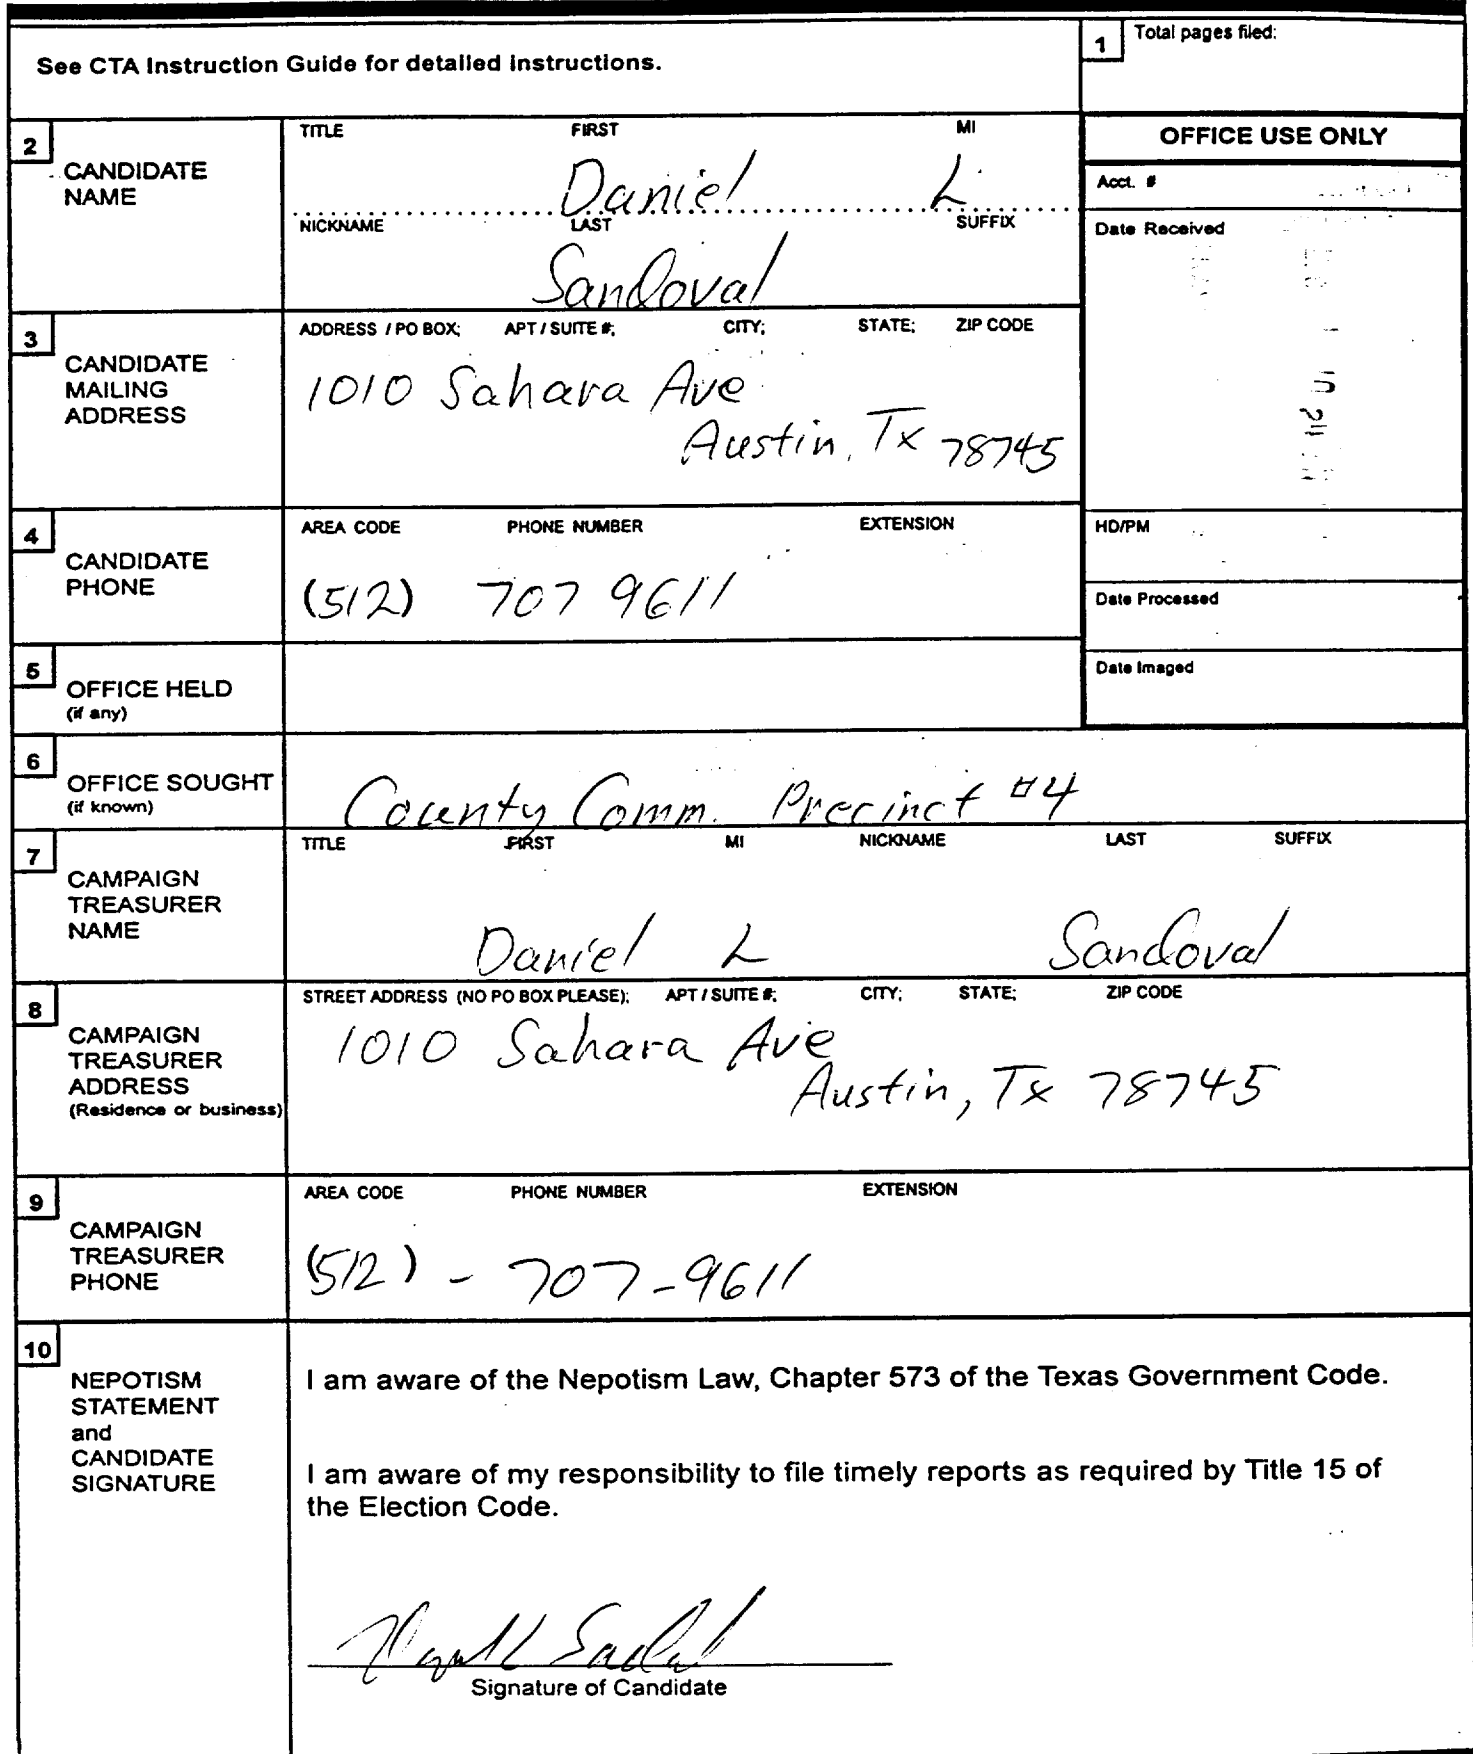 See CTA Instruction Guide for detailed instructions.
1 Total pages filed:
2 CANDIDATE NAME
TITLE FIRST MI
Daniel L.
NICKNAME LAST SUFFIX
Sandoval
OFFICE USE ONLY
Acct. #
Date Received
3 CANDIDATE MAILING ADDRESS
ADDRESS / PO BOX; APT / SUITE #; CITY; STATE; ZIP CODE
1010 Sahara Ave
Austin, Tx 78745
4 CANDIDATE PHONE
AREA CODE PHONE NUMBER EXTENSION
(512) 707 9611
HD/PM
Date Processed
Date Imaged
5 OFFICE HELD
(if any)
6 OFFICE SOUGHT
(if known)
County Comm. Precinct #4
7 CAMPAIGN TREASURER NAME
TITLE FIRST MI NICKNAME LAST SUFFIX
Daniel L Sandoval
8 CAMPAIGN TREASURER ADDRESS
(Residence or business)
STREET ADDRESS (NO PO BOX PLEASE); APT / SUITE #; CITY; STATE; ZIP CODE
1010 Sahara Ave
Austin, Tx 78745
9 CAMPAIGN TREASURER PHONE
AREA CODE PHONE NUMBER EXTENSION
(512) - 707-9611
10 NEPOTISM STATEMENT and CANDIDATE SIGNATURE
I am aware of the Nepotism Law, Chapter 573 of the Texas Government Code.
I am aware of my responsibility to file timely reports as required by Title 15 of
the Election Code.
Signature of Candidate